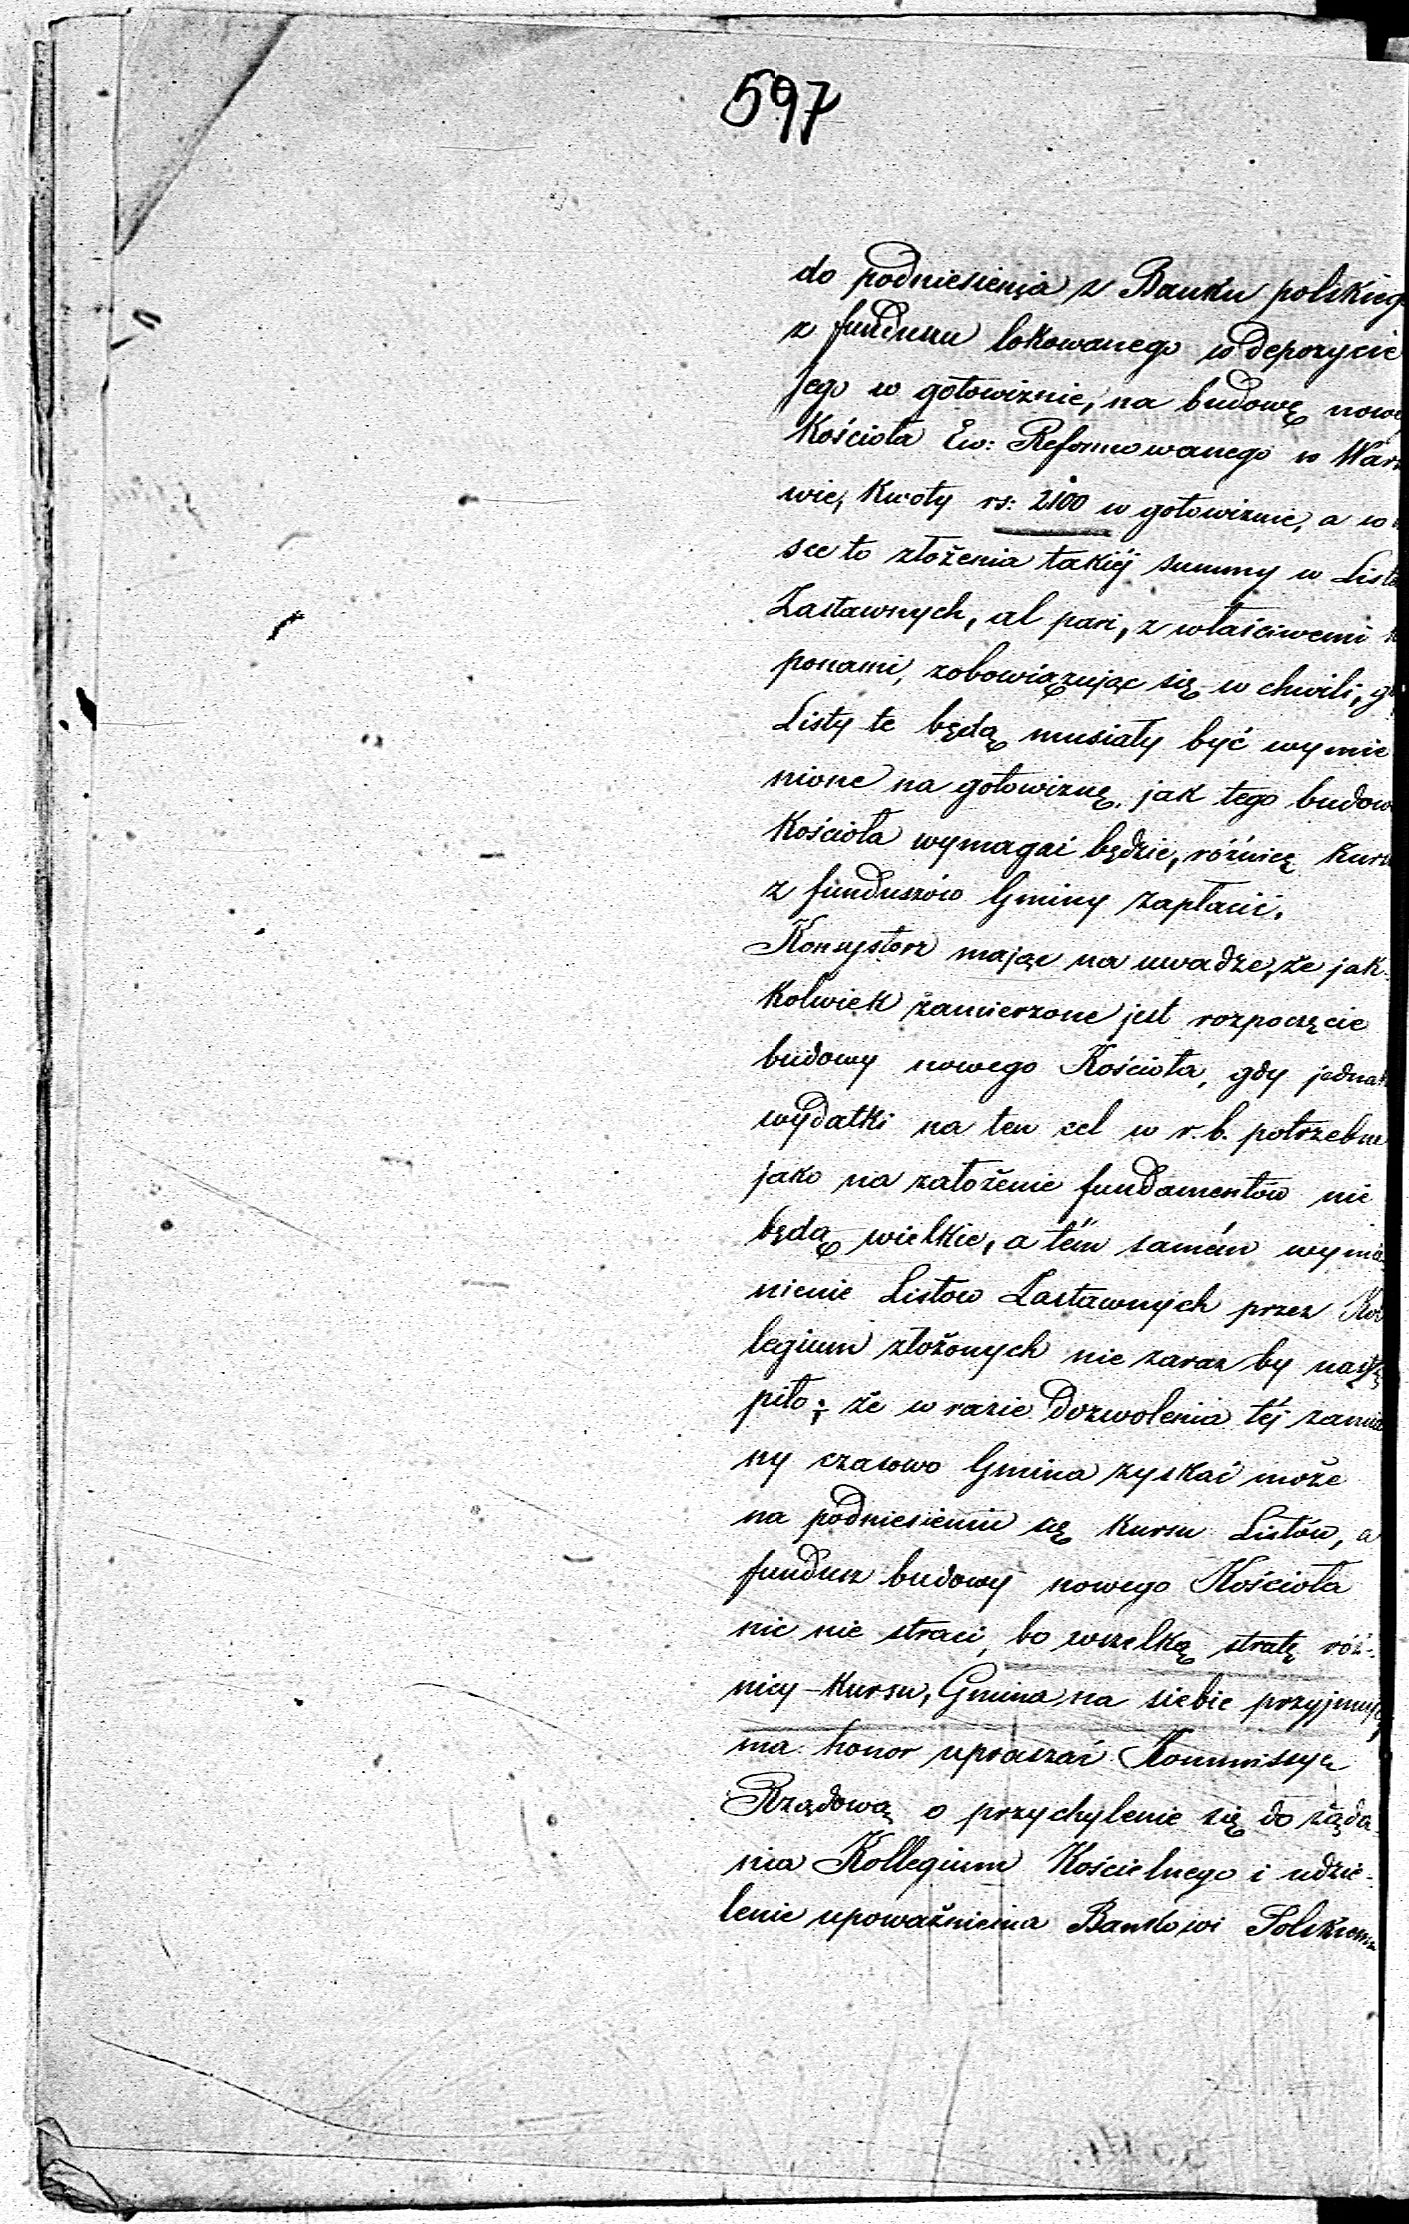 597
do podniesienia z Banku polskieg
z funduszu lokowanego w depozycie
jego w gotowiznie, na budowę nowe
Kościoła Ew: Reformowanego w Wars
wie, Kwoty rs: 2100 w gotowiznie, a w
sce to złożenia takiéj summy w List
Zastawnych, al pari, z właściwemi
ponami, zobowiązując się w chwili, g
Listy te będą musiały być wymie
nione na gotowiznę, jak tego budow
Kościoła wymagać będzie, różnicę kursu
z funduszów Gminy zapłacić.
Konsystorz mając na uwadze, że jak-
kolwiek zamierzone jest rozpoczęcie
budowy nowego Kościoła, gdy jednak
wydatki na ten cel w r. b. potrzebne
jako na założenie fundamentów nie
będą wielkie, a tém samém wymie
nienie Listów Zastawnych przez Kol
legium złożonych nie zaraz by nastą
piło; że w razie dozwolenia téj zamia
ny czasowo Gmina zyskać może
na podniesieniu się kursu Listów, a
fundusz budowy nowego Kościoła
nic nie straci, bo wszelką stratę róż-
nicy kursu, Gmina na siebie przyjmuje,
ma honor upraszać Kommissyą
Rządową o przychylenie się do żąda-
nia Kollegium Kościelnego i udzie-
lenie upoważnienia Bankowi Polskiemu